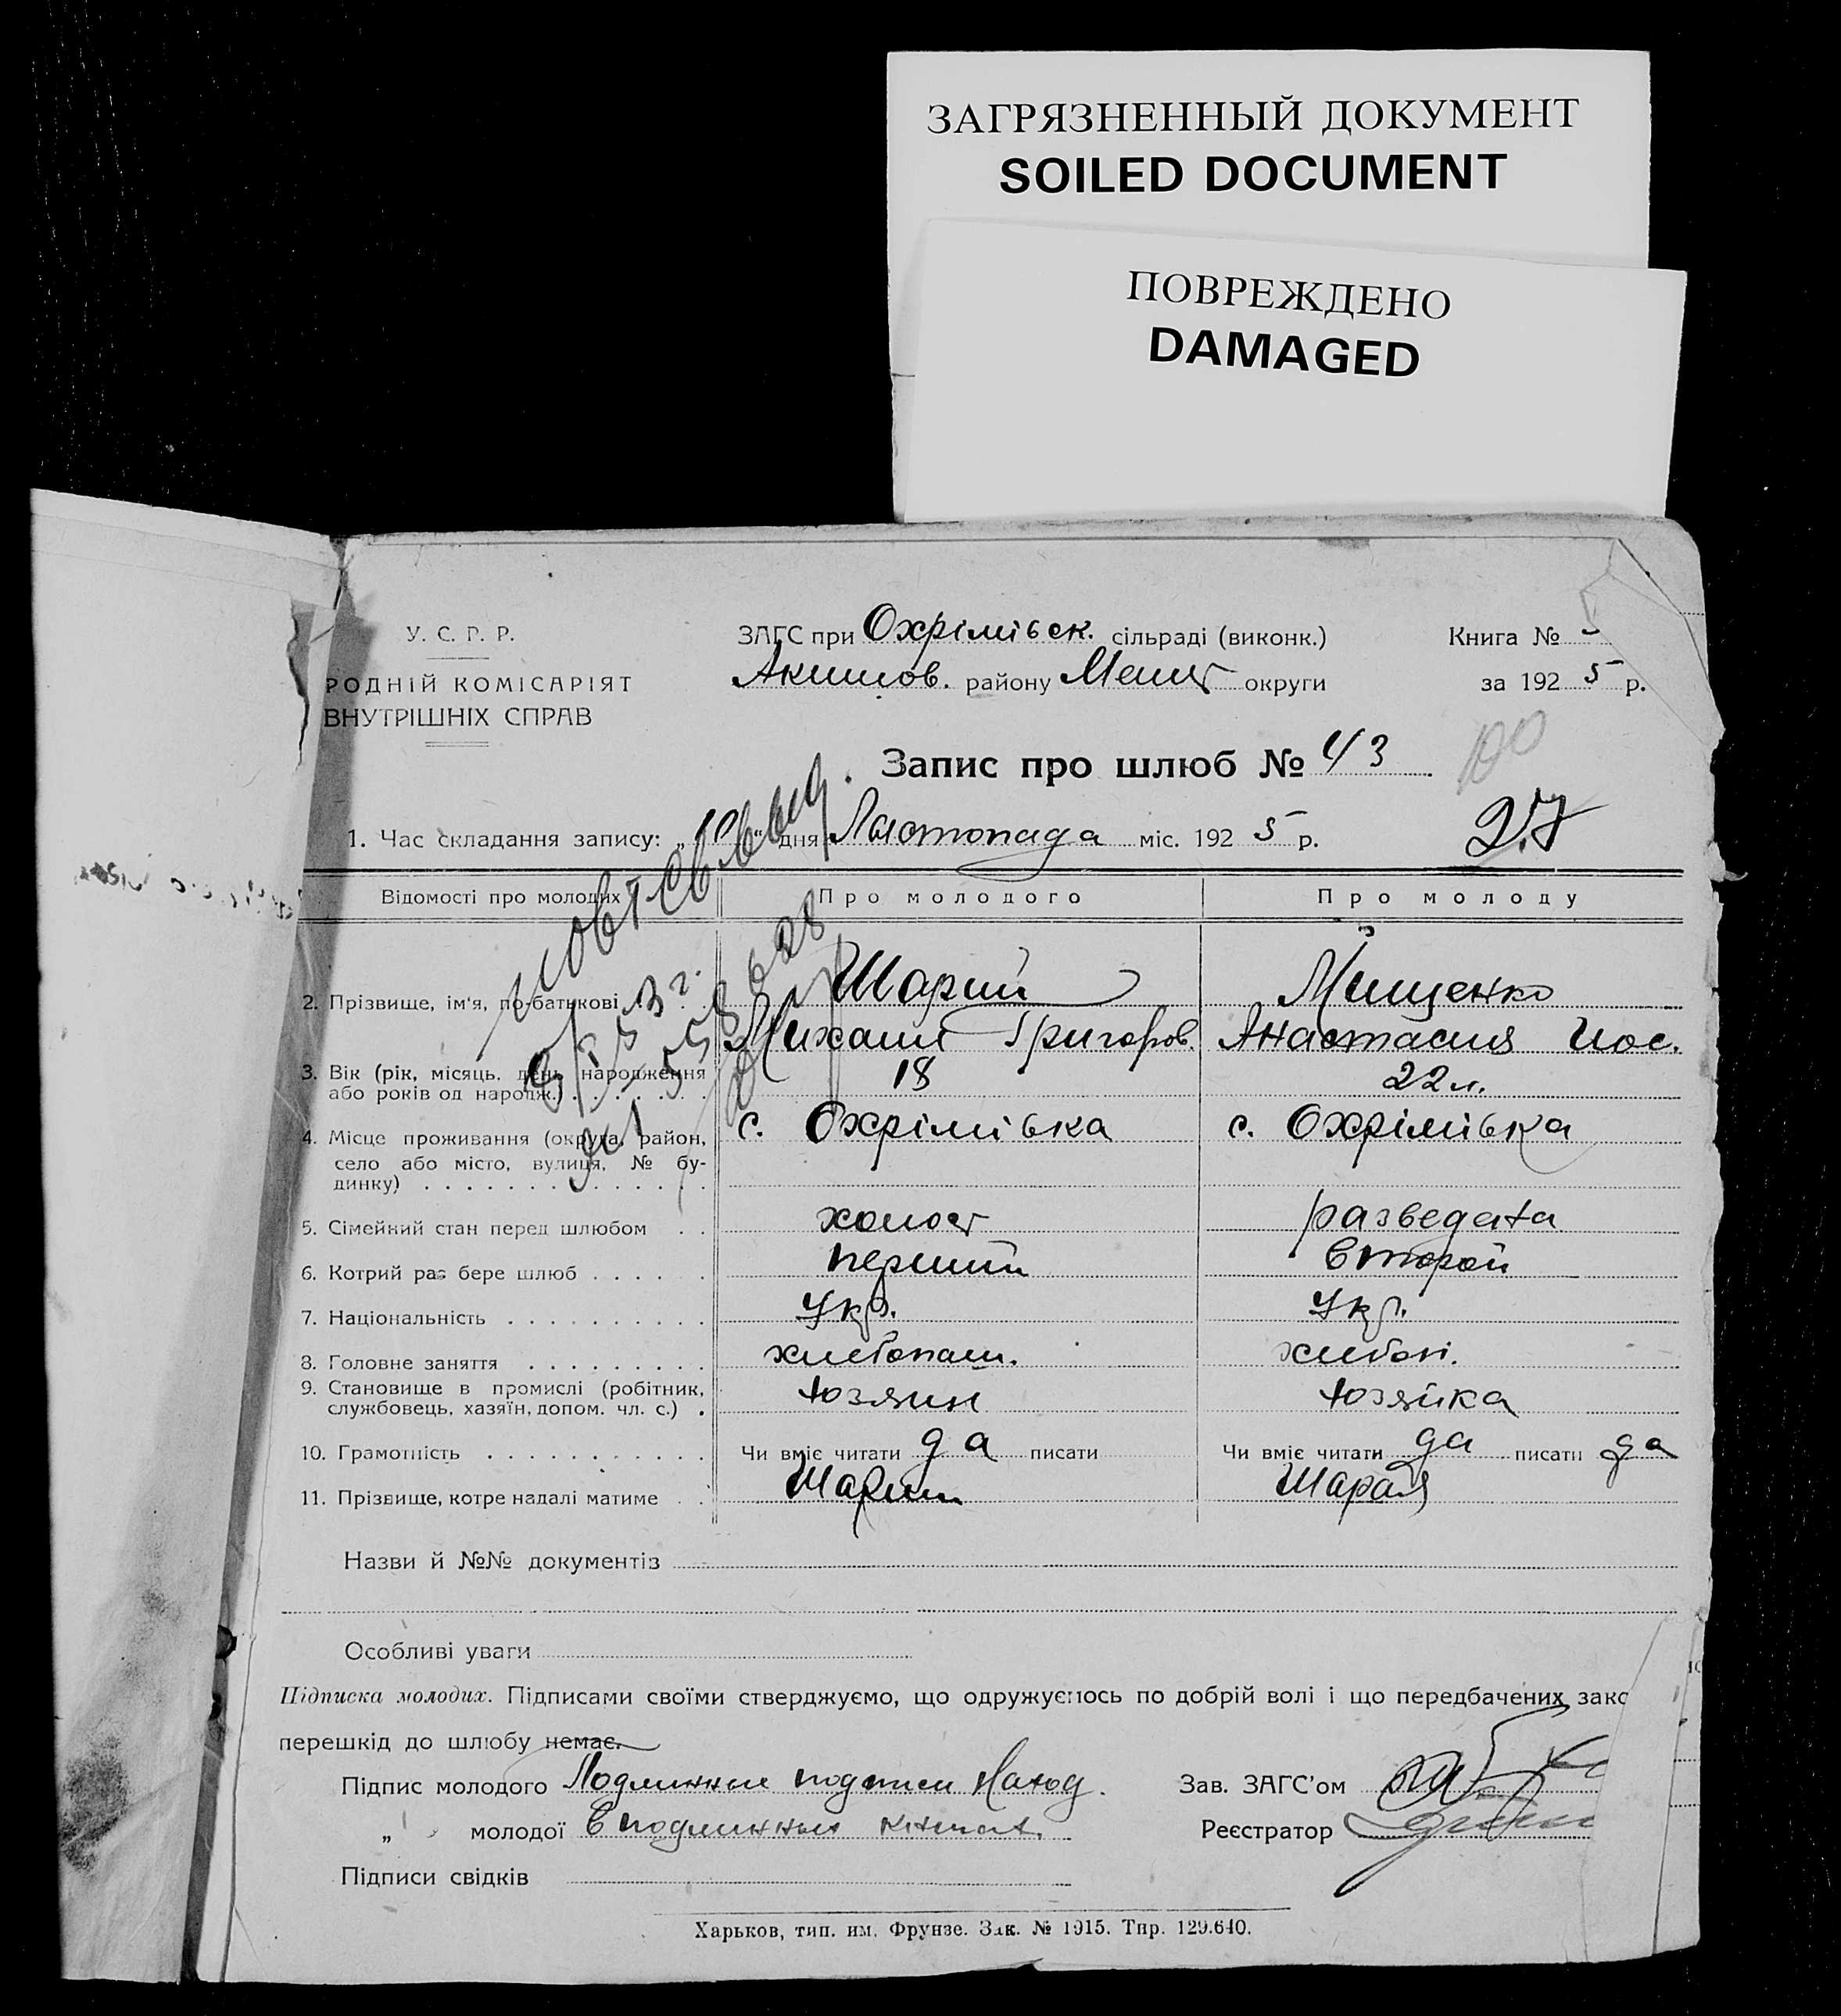 ЗАГРЯЗНЕННЫЙ ДОКУМЕНТ
SOILED DOCUMENT
ПОВРЕЖДЕНО
DAMAGED
У. С. Р. Р.
РОДНІЙ КОМІСАРІЯТ
ВНУТРІШНІХ СПРАВ
ЗАГС при Охрімівск. сільраді (виконк.)
Акимов. району Мелит округи
Книга №
за 1925 р.
Запис про шлюб № 43
100
27
1. Час складання запису: „10“ дня Листопада міс. 1925 р.
Відомості про молодих
Про молодого
Про молоду
2. Прізвище, ім'я, по-батькові
Шарий
Мищенко
Михаил Григоров.
Анастасия Иос.
3. Вік (рік, місяць, день народження
або років од народж.)
18
22 л.
4. Місце проживання (округа, район,
село або місто, вулиця, № бу-
динку)
с. Охрімівка
с. Охрімівка
5. Сімейний стан перед шлюбом
холост
разведата
6. Котрий раз бере шлюб
перший
второй
7. Національність
Укр.
Укр.
8. Головне заняття
хлебопаш.
9. Становище в промислі (робітник,
службовець, хазяїн, допом. чл. с.)
хозяин
хозяйка
10. Грамотність
Чи вміє читати да писати
Чи вміє читати да писати да
11. Прізвище, котре надалі матиме
Шарий
Шарая
Назви й №№ документів
Особливі уваги
Підписка молодих. Підписами своїми стверджуємо, що одружуємось по добрій волі і що передбачених зако
перешкід до шлюбу немає.
Підпис молодого Подлинные подписи наход.
„ молодої в подлинных книгах.
Підписи свідків
Зав. ЗАГС'ом
Реєстратор
Харьков, тип. им. Фрунзе. Зак. № 1915. Тир. 129.640.